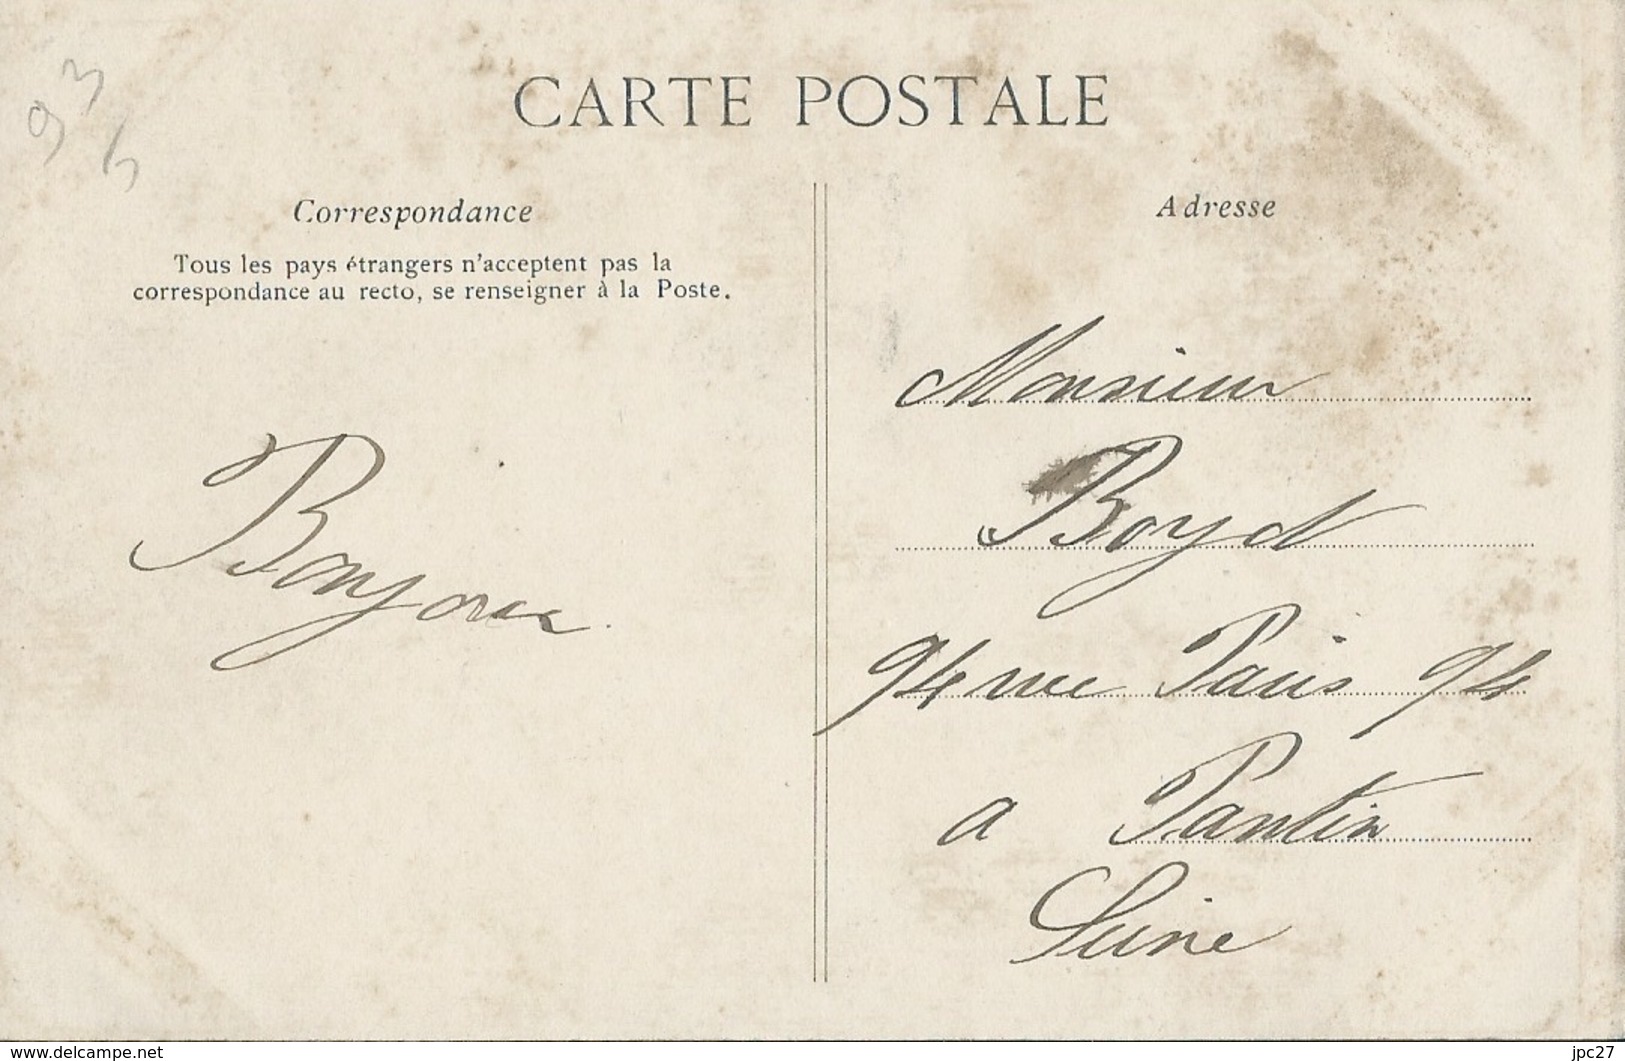 93
6
CARTE POSTALE
Correspondance
Tous les pays étrangers n'acceptent pas la
correspondance au recto, se renseigner à la Poste.
Bonjour
Adresse
Monsieur
Boyd
94 rue Paris 94
a Pantin
Seine
www.delcampe.net
jpc27